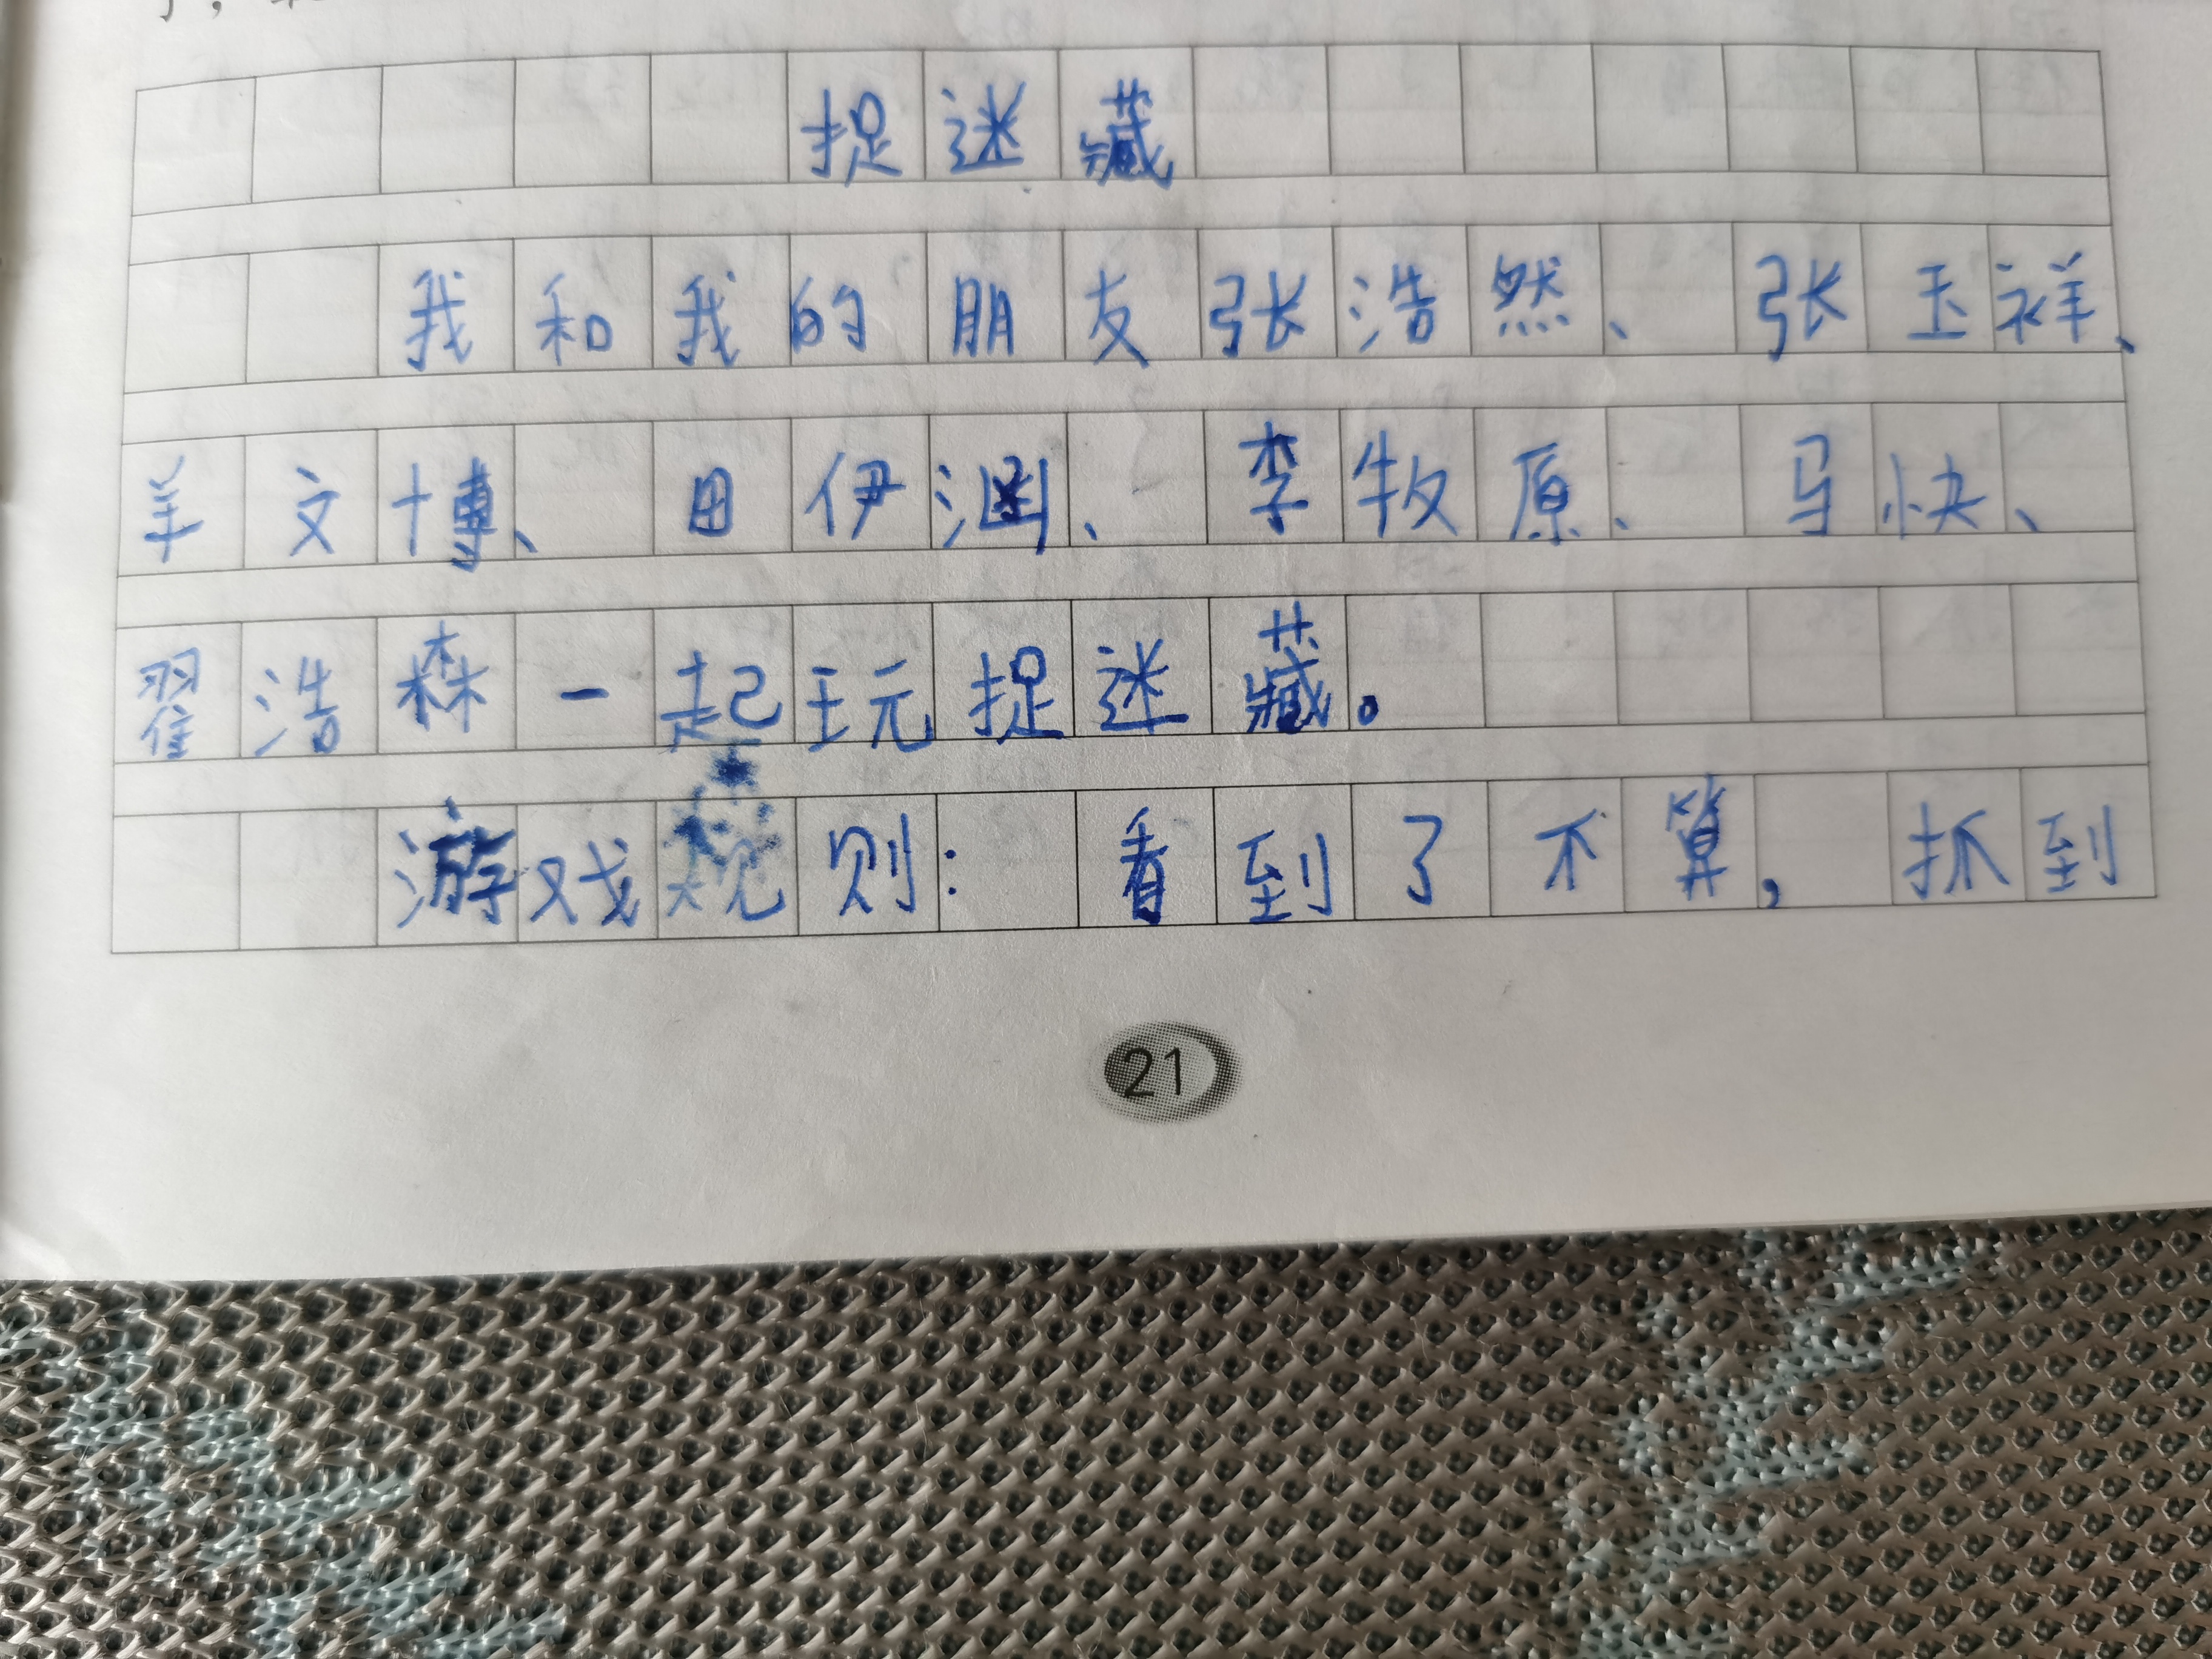 捉迷藏
我和我的朋友张浩然、张玉祥、
羊文博、田伊涵、李牧原、马快、
翟浩森一起玩捉迷藏。
游戏规则：看到了不算，抓到
21